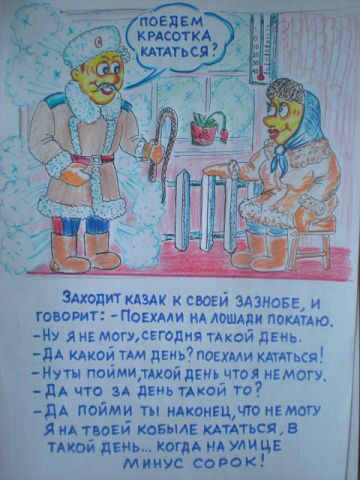 ПОЕДЕМ
КРАСОТКА
КАТАТЬСЯ?
ЗАХОДИТ КАЗАК К СВОЕЙ ЗАЗНОБЕ, И
ГОВОРИТ: - ПОЕХАЛИ НА ЛОШАДИ ПОКАТАЮ.
- НУ Я НЕ МОГУ, СЕГОДНЯ ТАКОЙ ДЕНЬ.
- ДА КАКОЙ ТАМ ДЕНЬ? ПОЕХАЛИ КАТАТЬСЯ!
- НУ ТЫ ПОЙМИ, ТАКОЙ ДЕНЬ ЧТО Я НЕ МОГУ.
- ДА ЧТО ЗА ДЕНЬ ТАКОЙ ТО?
- ДА ПОЙМИ ТЫ НАКОНЕЦ, ЧТО НЕ МОГУ
Я НА ТВОЕЙ КОБЫЛЕ КАТАТЬСЯ, В
ТАКОЙ ДЕНЬ... КОГДА НА УЛИЦЕ
МИНУС СОРОК!